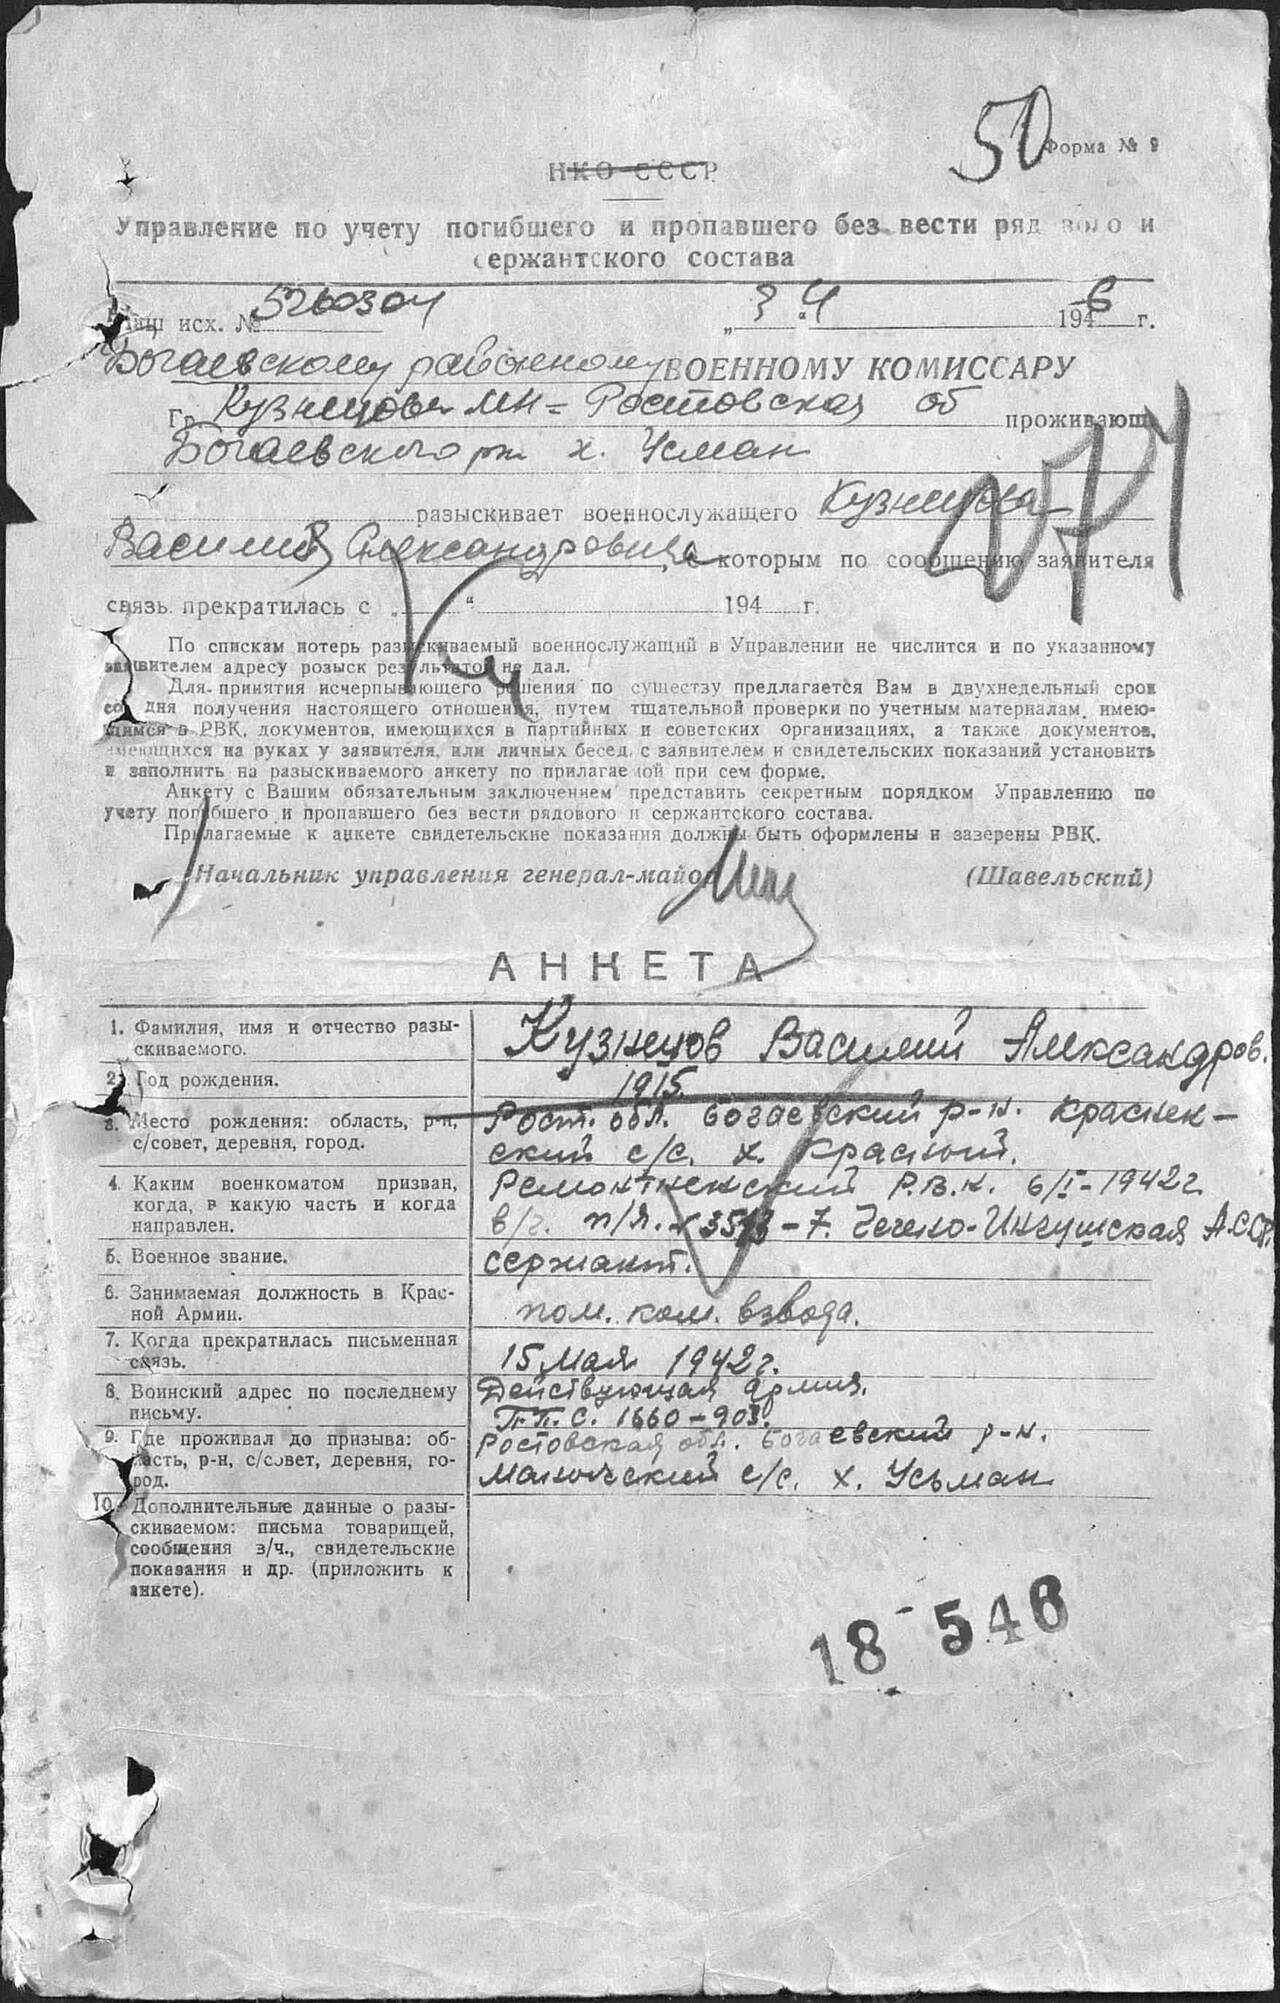 50
Форма № 9
НКО СССР
Управление по учету погибшего и пропавшего без вести рядового и
сержантского состава
Наш исх. № 5260304 „3“ 4 1946 г.
Богаевскому районному ВОЕННОМУ КОМИССАРУ
Гр. Кузнецова МН = Ростовская об проживающ
Богаевского рн х. Усман
разыскивает военнослужащего Кузнецова
Василия Александровича, с которым по сообщению заявителя
связь прекратилась с „ “ 194 г.
По спискам потерь разыскиваемый военнослужащий в Управлении не числится и по указанному
заявителем адресу розыск результатов не дал.
Для принятия исчерпывающего решения по существу предлагается Вам в двухнедельный срок
со дня получения настоящего отношения, путем тщательной проверки по учетным материалам, имею-
щимся в РВК, документов, имеющихся в партийных и советских организациях, а также документов,
имеющихся на руках у заявителя, или личных бесед с заявителем и свидетельских показаний установить
и заполнить на разыскиваемого анкету по прилагаемой при сем форме.
Анкету с Вашим обязательным заключением представить секретным порядком Управлению по
учету погибшего и пропавшего без вести рядового и сержантского состава.
Прилагаемые к анкете свидетельские показания должны быть оформлены и заверены РВК.
Начальник управления генерал-майор (Шавельский)
АНКЕТА
1. Фамилия, имя и отчество разы-
скиваемого.
Кузнецов Василий Александров.
2. Год рождения.
1915.
3. Место рождения: область, р-н,
с/совет, деревня, город.
Рост. обл. Богаевский р-н. Краснен-
ский с/с. х. Красный.
4. Каким военкоматом призван,
когда, в какую часть и когда
направлен.
Ремонтненский Р.В.К. 6/I-1942г
в/г. п/я. 3513-7. Чечено-Ингушская А.ССР.
5. Военное звание.
сержант.
6. Занимаемая должность в Крас-
ной Армии.
пом. ком. взвода.
7. Когда прекратилась письменная
связь.
15 Мая 1942г.
8. Воинский адрес по последнему
письму.
Действующая Армия.
П.П.С. 1660-903.
9. Где проживал до призыва: об-
ласть, р-н, с/совет, деревня, го-
род.
Ростовская обл. Богаевский р-н.
Маночский с/с. х. Усьман
10. Дополнительные данные о разы-
скиваемом: письма товарищей,
сообщения в/ч., свидетельские
показания и др. (приложить к
анкете).
18 546